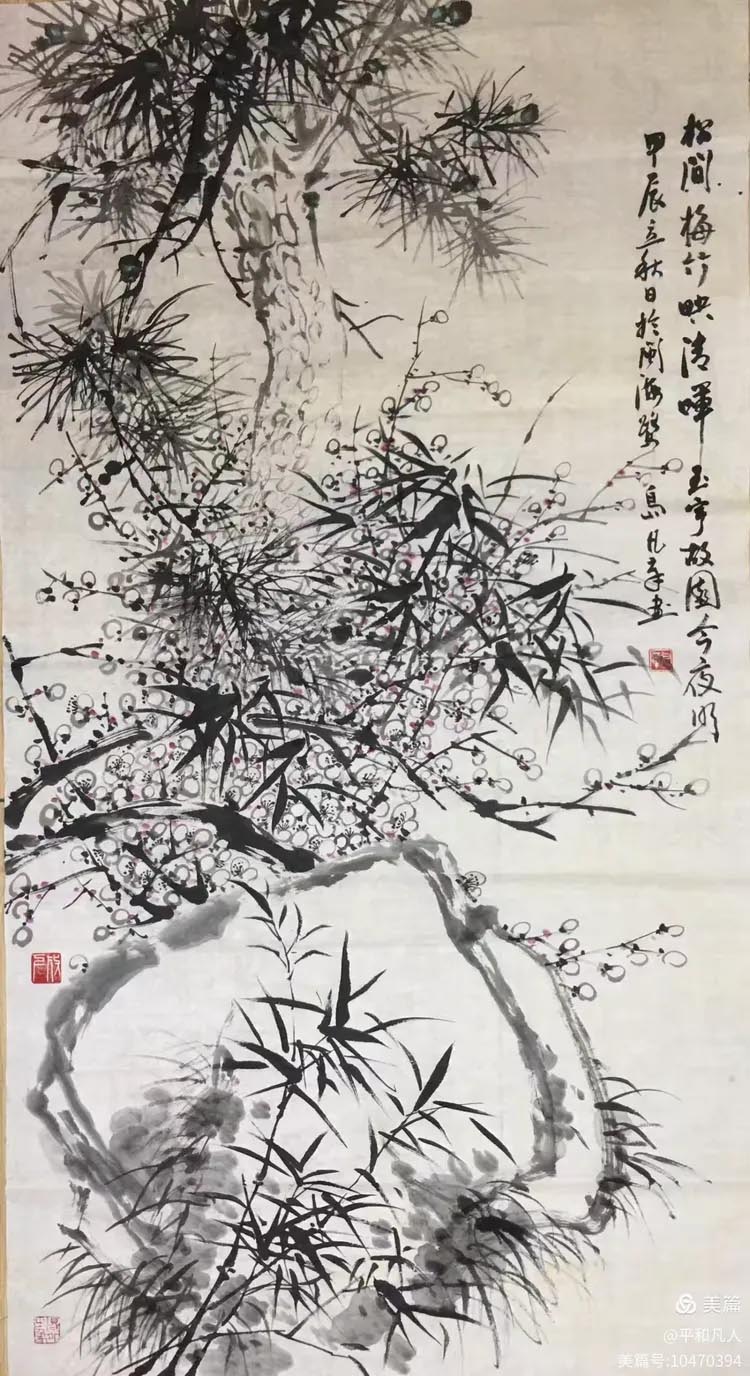 松间梅竹映清晖玉宇故园今夜明
甲辰立秋日於闽海鹭岛凡辛画
美篇
@平和凡人
美篇号:10470394